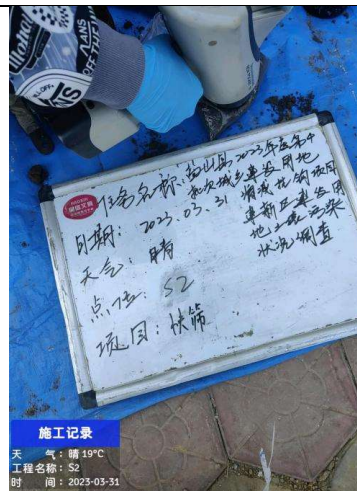 任务名称：盐山县2023年度第十
批次城乡建设用地
增减挂钩项目
建新区建设用
地土壤污染
状况调查
日期：2023.03.31
天气：晴
点位：S2
项目：快筛
施工记录
天 气：晴 19°C
工程名称：S2
时 间：2023-03-31